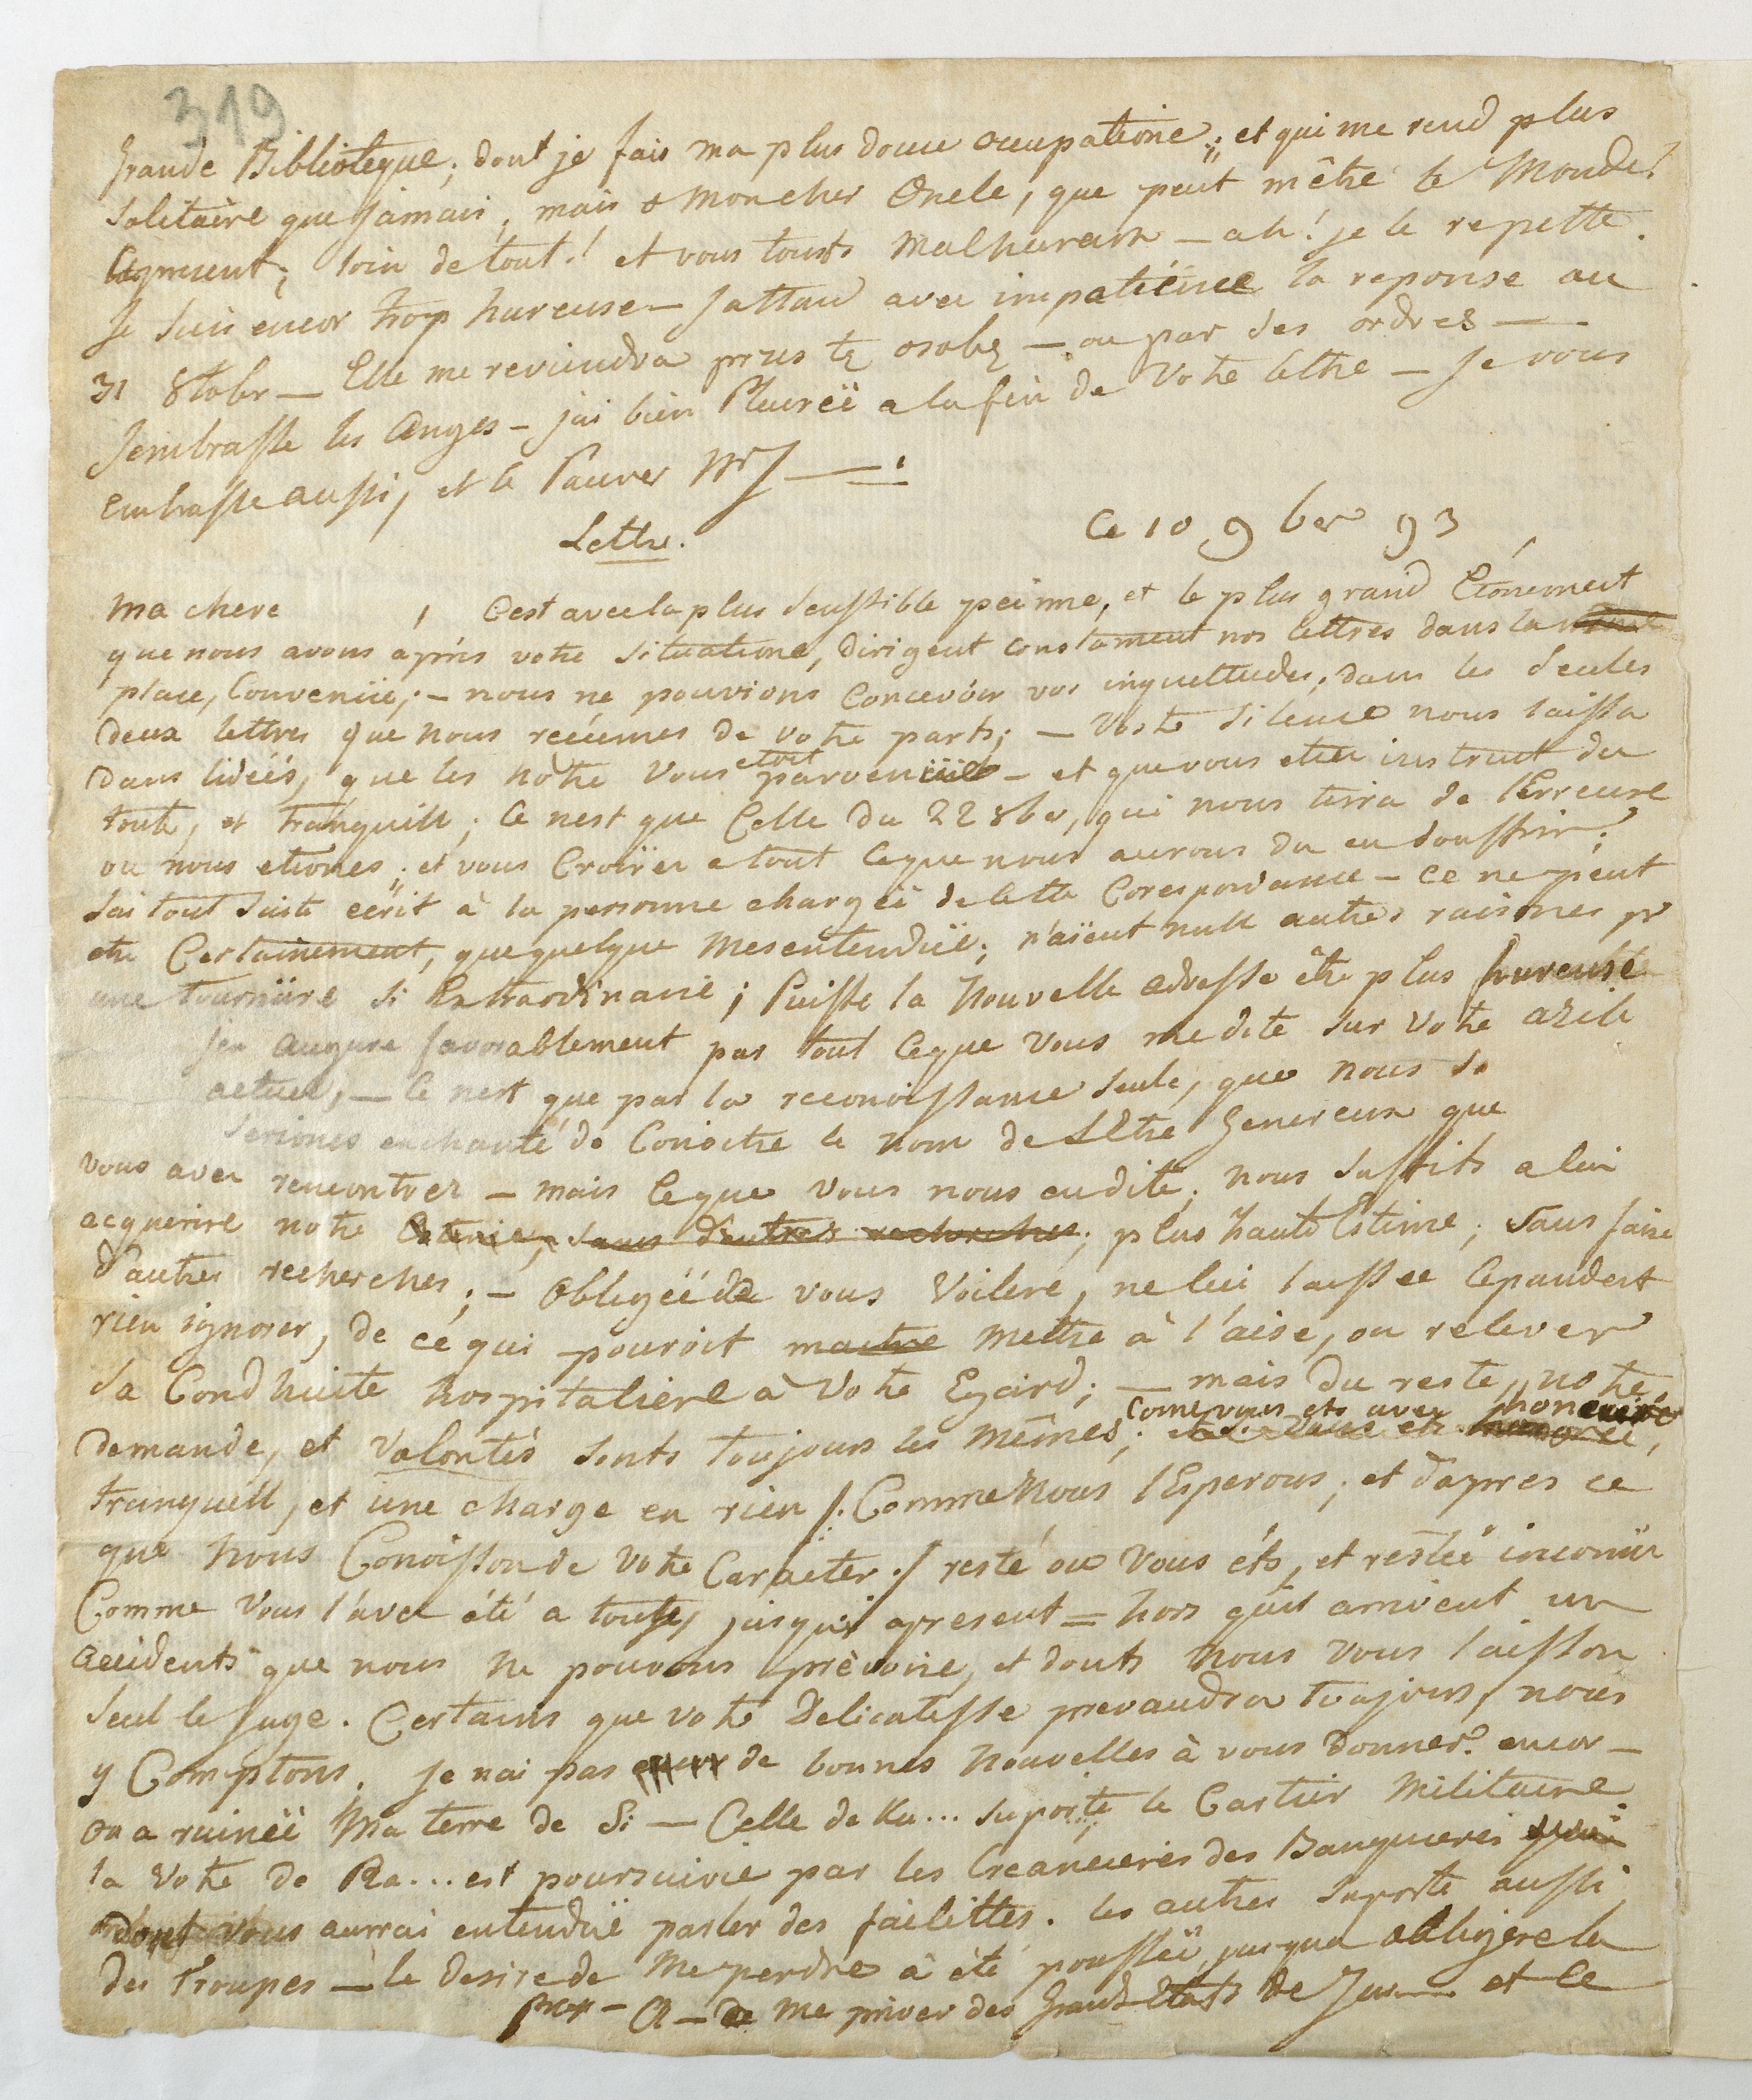 319
grande Biblioteque; dont je fais ma plus douce occupatione; et qui me rend plus
Solitaire que jamais; mais o mon cher Oncle, que peut m'être le Monde?
apresent; loin de tout! et vous touts Malheureux – ah! je le repette.
je suis encor trop hureuse – jattand avec impatience la reponse au
31 8tobr – Elle me reviendra – ou par ses ordres —
Jembrasse les Anges – jai bien Pleureé a la fin de Votre lettre – Je vous
embrasse aussi, et le Pauver —
Lettre.
Ce 10 9ber 93
Ma chere , C'est avec la plus senssible peinne, et le plus grand Etónement
que nous avons apris votre Situatione, dirigent constament nos lettres dans la
place, Convenüe; – nous ne pouvions Concevoir vos inquettudes, dans les Seules
deux lettres que nous recûemes de votre parts; – Votre Silence nous laissa
dans lideés, que les notre Vous etoit parvenüe – et que vous etiez instruit du
toute, et tranquill; Ce nest que Celle du 22 8ber, qui nous tirra de l'Erreure
ou nous etiones; et vous Croïrez a tout ce que nous aurons du en souffrir;
Jai tout suite ecrit à la personne chargéé de cette Corespondance – ce ne peut
etre Certainement, que quelque Mesentendüe; n'aïent null autres raisones pr
une tournüre si Extraordinaire; Puisse la Nouvelle adresse être plus hureuse
Jen augure favorablement par tout ce que Vous me dite sur Votre azile
actuel, – Ce nest que par la reconoissance seule, que nous
Seriones enchanté de Conoitre le nom de L'Etre Genereux que
vous avez rencontrer – mais ce que vous nous en dite, nous suffits a lui
acquerire notre Estime, sans d'autres recherches; plus haute Estime; sans faire
d'autres recherches; – Obligéé de vous Voilere, ne lui laissee Cepandent
rien ignorer, de ce qui pouroit mettre à l'aise, ou relever
sa Condhuite hospitaliere à Votre Egaird; — mais du reste, notre
Come vous ets avec
demande, et Volontés sonts toujours les Mêmes;
tranquill, et une charge en rien /: Comme Nous l'Esperons; et d'apres ce
que nous Conoisson de Votre Caracter :/ resté ou Vous éts, et restéé inconüe
Comme Vous l'avez été a touts, jusqu'à apresent = hors qu'il arrivent un
accidents que nous ne pouvons prèvoire, et donts Nous Vous laisson
Seul le Juge. Certains que votre Delicatesse prevaudra toujours, nous
y Comptons. je nai pas de bonnes Nouvelles à vous donner encor –
on a ruinéé Ma terre de Si — Celle de Ku... suporte le Cartier Militaire
la Votre de Ra... est poursuivie par les Creancieres des Banquieres
dont Vous aurrai entendüe parler des failittes. les autres suporte aussi
des Troupes – le desire de Me perdre à été pousséé, jusqua obligere la
– A – de me priver des Grand Etats de Ju— et ce